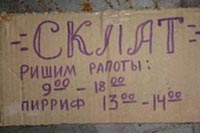 =СКЛАТ=
РИШИМ РАПОТЫ:
9⁰⁰ - 18⁰⁰
ПИРРИФ 13⁰⁰-14⁰⁰